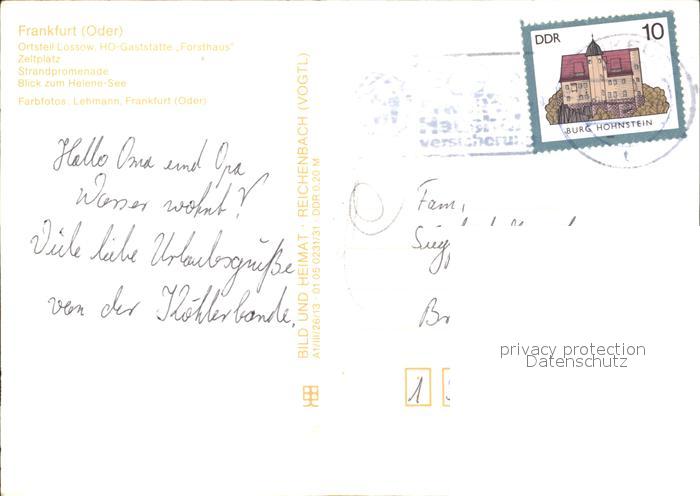 Frankfurt (Oder)
Ortsteil Lossow, HO-Gaststätte „Forsthaus"
Zeltplatz
Strandpromenade
Blick zum Helene-See
Farbfotos: Lehmann, Frankfurt (Oder)
Hallo Oma und Opa
Wasser wohnt?
Viele liebe Urlaubsgrüße
von der Köhlerbande.
BILD UND HEIMAT · REICHENBACH (VOGTL)
A1/III/26/13 · 01 05 0231/31 · DDR 0,20 M
DDR
10
BURG HOHNSTEIN
versicherung
Fam.
Br
1
privacy protection
Datenschutz